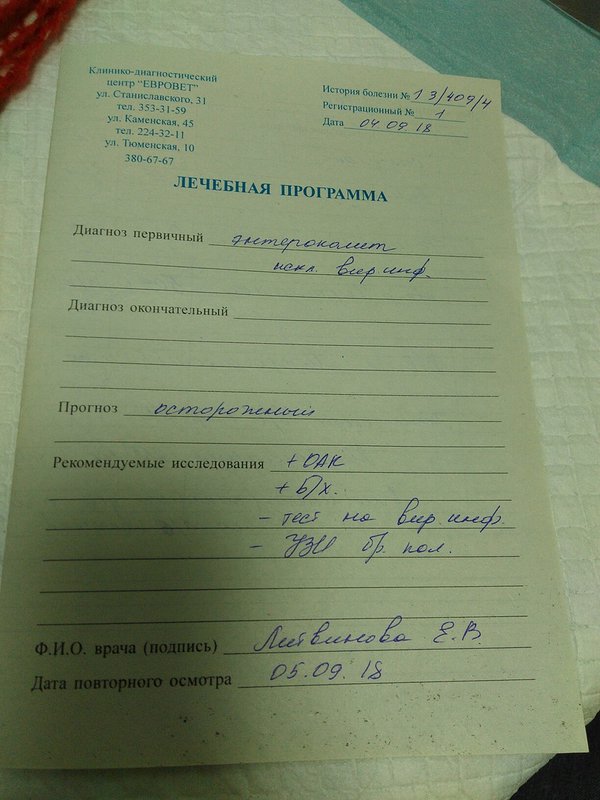 Клинико-диагностический
центр "ЕВРОВЕТ"
ул. Станиславского, 31
тел. 353-31-59
ул. Каменская, 45
тел. 224-32-11
ул. Тюменская, 10
380-67-67
История болезни № 13/409/4
Регистрационный № 1
Дата 04.09.18
ЛЕЧЕБНАЯ ПРОГРАММА
Диагноз первичный энтероколит
искл. вир инф.
Диагноз окончательный
Прогноз осторожный
Рекомендуемые исследования + ОАК
+ Б/х.
- тест на вир. инф.
- УЗИ бр. пол.
Ф.И.О. врача (подпись) Литвинова Е.В.
Дата повторного осмотра 05.09.18